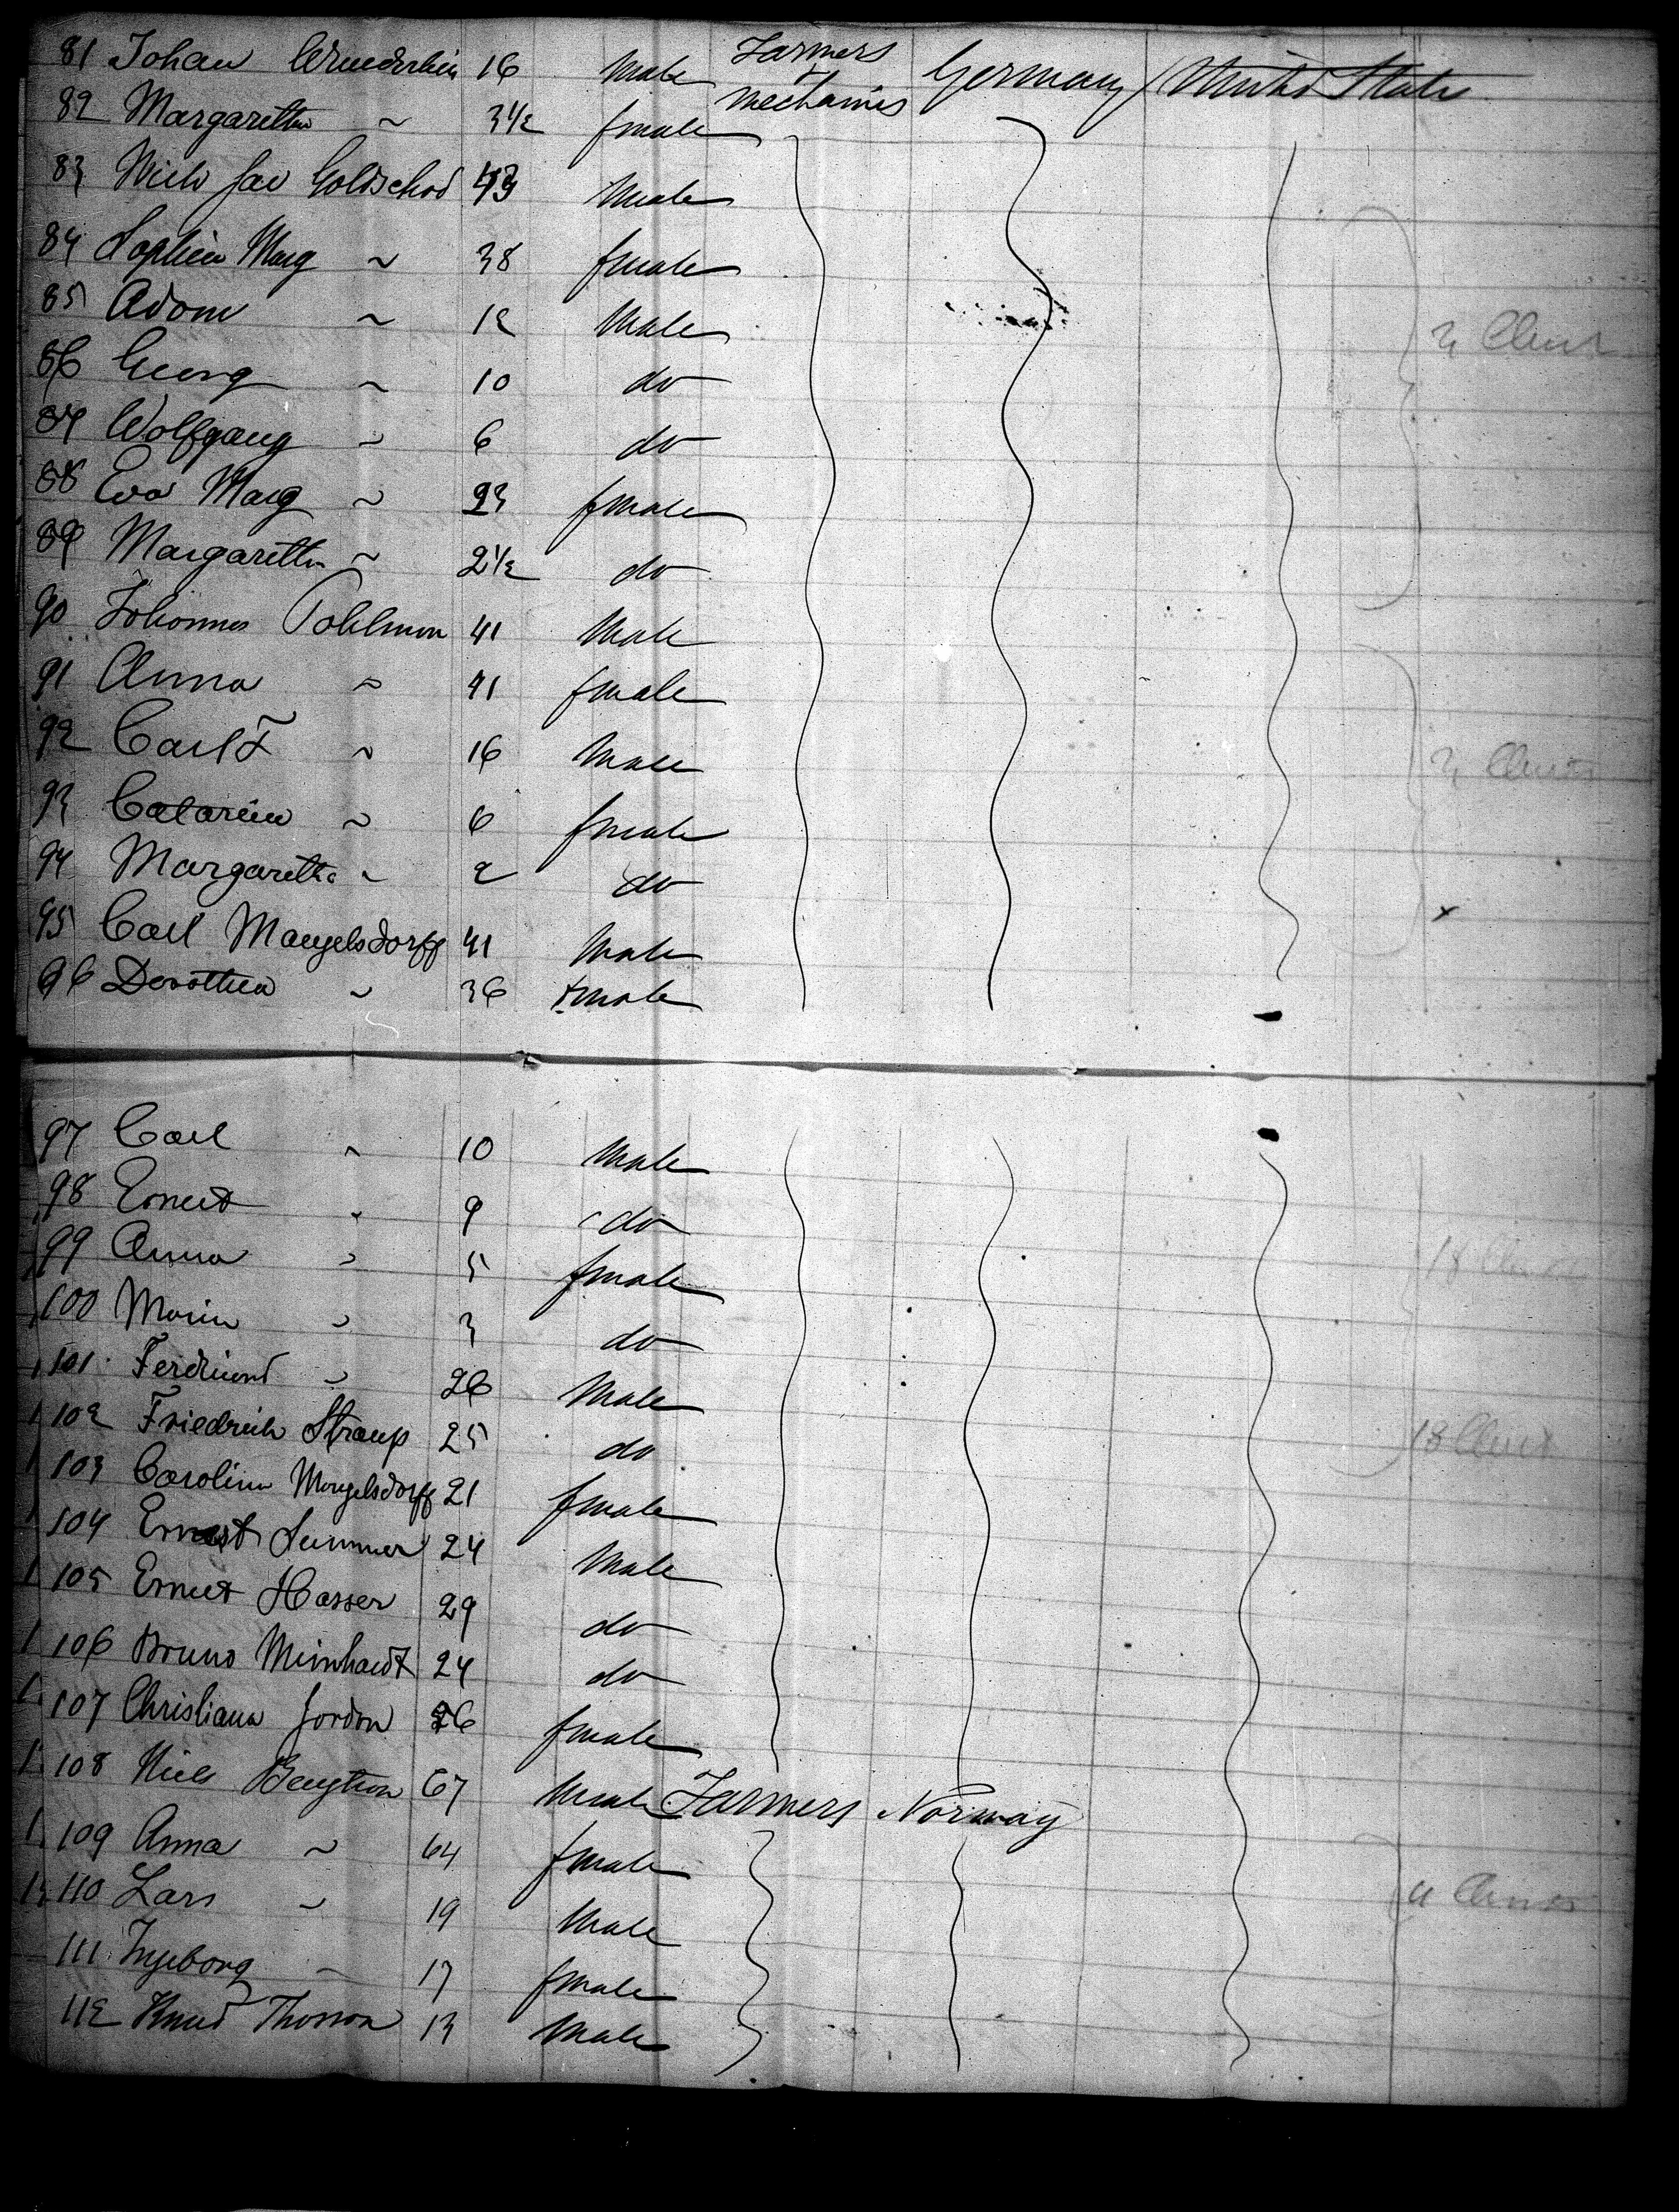 81 Johan Wunderlin 16 Male Farmers + Mechanics Germany United States
82 Margaretha ~ 3 1/2 female
83 Mich Jac Goldschod 43 Male
84 Sophia Marg ~ 38 female
85 Adam ~ 12 Male
86 Georg ~ 10 do
87 Wolfgang ~ 6 do
88 Eva Marg ~ 23 female
89 Margaretha ~ 2 1/2 do
90 Johannes Pohlman 41 Male
91 Anna ~ 41 female
92 Carl F ~ 16 Male
93 Catarina ~ 6 female
94 Margaretha ~ 2 do
95 Carl Mangelsdorff 41 Male
96 Dorothea ~ 36 female
97 Carl ~ 10 Male
98 Ernest ~ 9 do
99 Anna ~ 5 female
100 Maria ~ 3 do
101 Ferdinand ~ 26 Male
102 Friedrich Straup 25 do
103 Carolina Mangelsdorff 21 female
104 Ernest Summer 24 Male
105 Ernest Hasser 29 do
106 Bruno Meinhardt 24 do
107 Christiana Jordon 26 female
108 Niels Bengtson 67 Male Farmers Norway
109 Anna ~ 64 female
110 Lars ~ 19 Male
111 Ingeborg ~ 17 female
112 Knud Thosson 13 Male